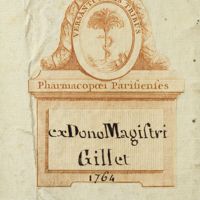 VERSANTUR HIS TRIBUS
Pharmacopœi Parisienses
ex Dono Magistri
Gillet
1764